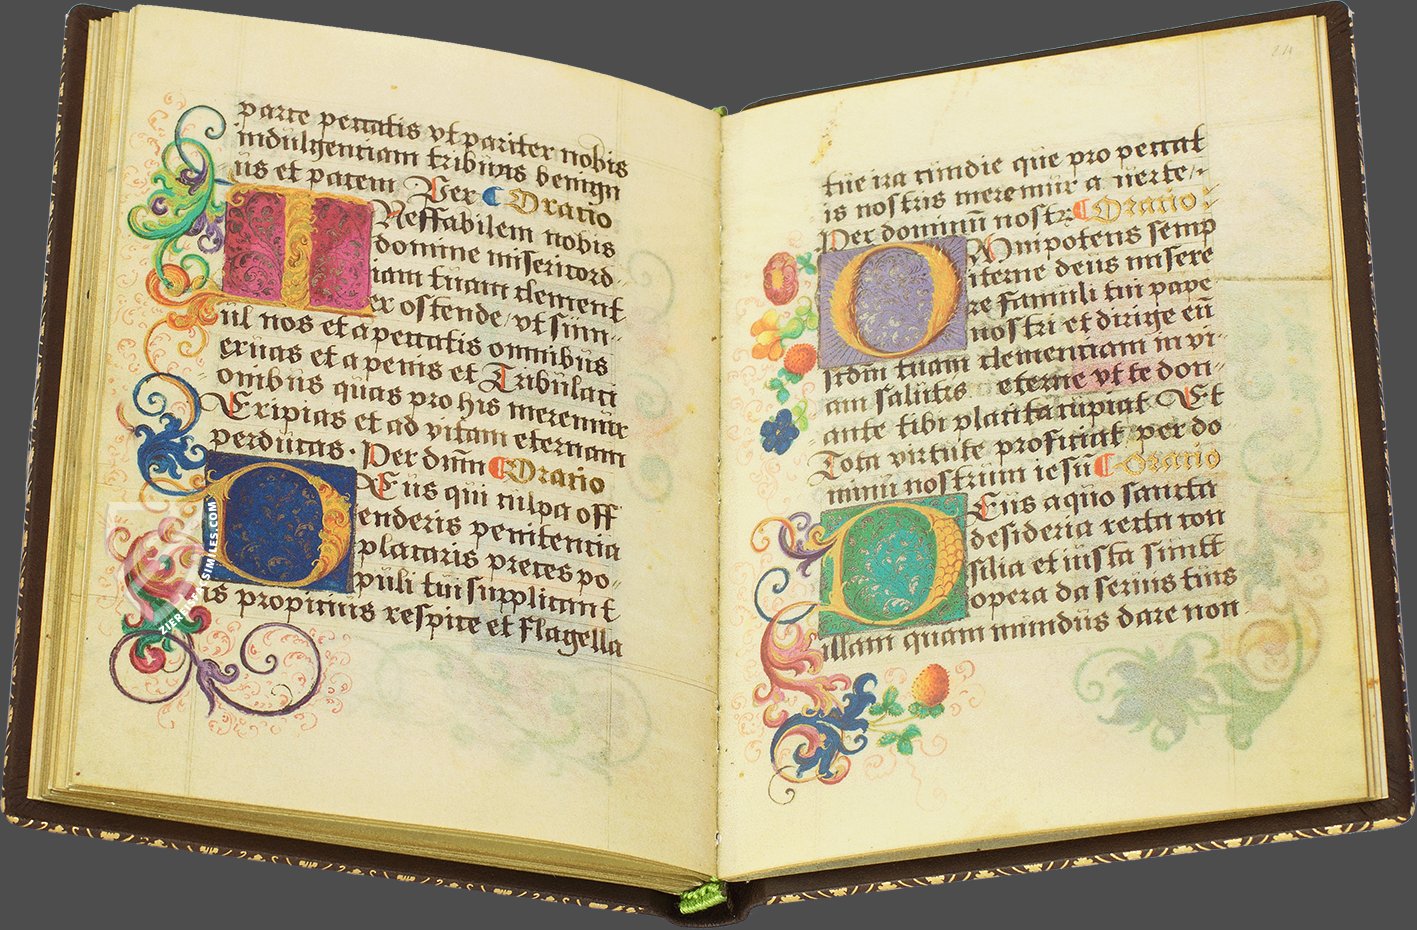 parte peccatis vt pariter nobis
indulgentiam tribuas benign
us et pacem Per Oratio
Ineffabilem nobis
domine misericord
iam tuam clement
er ostende / vt sim-
ul nos et a peccatis omnibus
exuas et a penis et Tribulati
onibus quas pro his meremur
Eripias et ad vitam eternam
perducas. Per dnm Oratio
DEus qui culpa off
enderis penitentia
placaris preces po-
puli tui supplicant
is propicius respice et flagella
ZIEREIS FACSIMILES.COM
24
tue ira cundie que pro peccat
is nostris meremur a uerte /
Per dominum nostr Oratio
OMmpotens semp
iterne deus misere
re famuli tui pape
nostri et dirige eu
scdm tuam clementiam in vi-
am salutis eterne vt te don-
ante tibi placita cupiat Et
Tota virtute proficiat per do
minu nostrum iesu Oratio
DEus a quo sancta
desideria recta con
silia et iusta sunt
opera da seruis tuis
illam quam mundus dare non